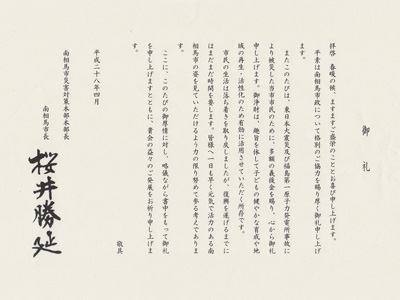 御礼
拝啓　春暖の候、ますますご盛栄のこととお喜び申し上げます。
平素は南相馬市政について格別のご協力を賜り厚く御礼申し上げ
ます。
またこのたびは、東日本大震災及び福島第一原子力発電所事故に
より被災した当市市民のために、多額の義援金を賜り、心から御礼
申し上げます。御浄財は、趣旨を体して子どもの健やかな育成や地
域の再生・活性化のため有効に活用させていただく所存です。
市民の生活は落ち着きを取り戻しましたが、復興を遂げるまでに
はまだまだ時間を要します。皆様へ一日も早く元気で活力のある南
相馬市の姿を見ていただけるよう力の限り努めて参る考えでありま
す。
ここに、このたびの御厚情に対し、略儀ながら書中をもって御礼
を申し上げますとともに、貴会の益々のご発展をお祈り申し上げま
す。
敬具
平成二十八年四月
南相馬市災害対策本部本部長
南相馬市長
桜井勝延